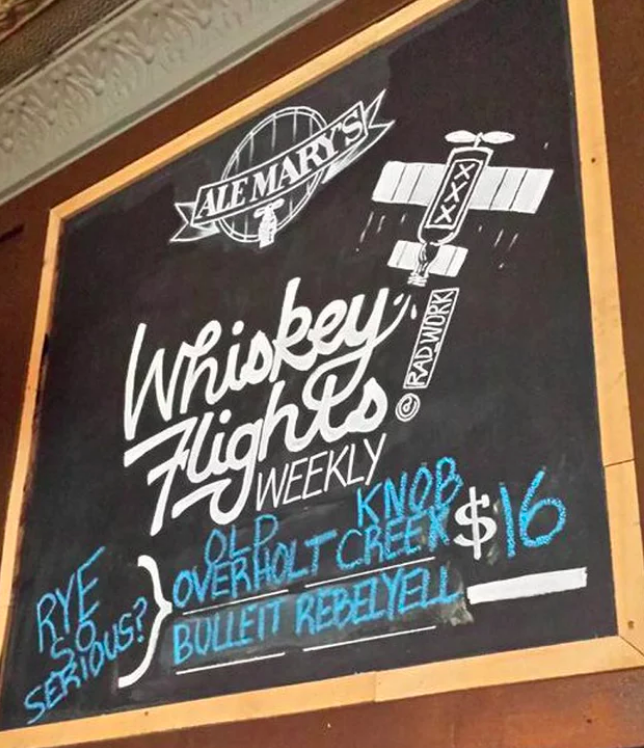 ALE MARY'S
XXX
Whiskey
Flights
WEEKLY
@RAD_WORK
RYE
SO
SERIOUS?
OLD
OVERHOLT
KNOB
CREEK
$16
BULLEIT REBELYELL